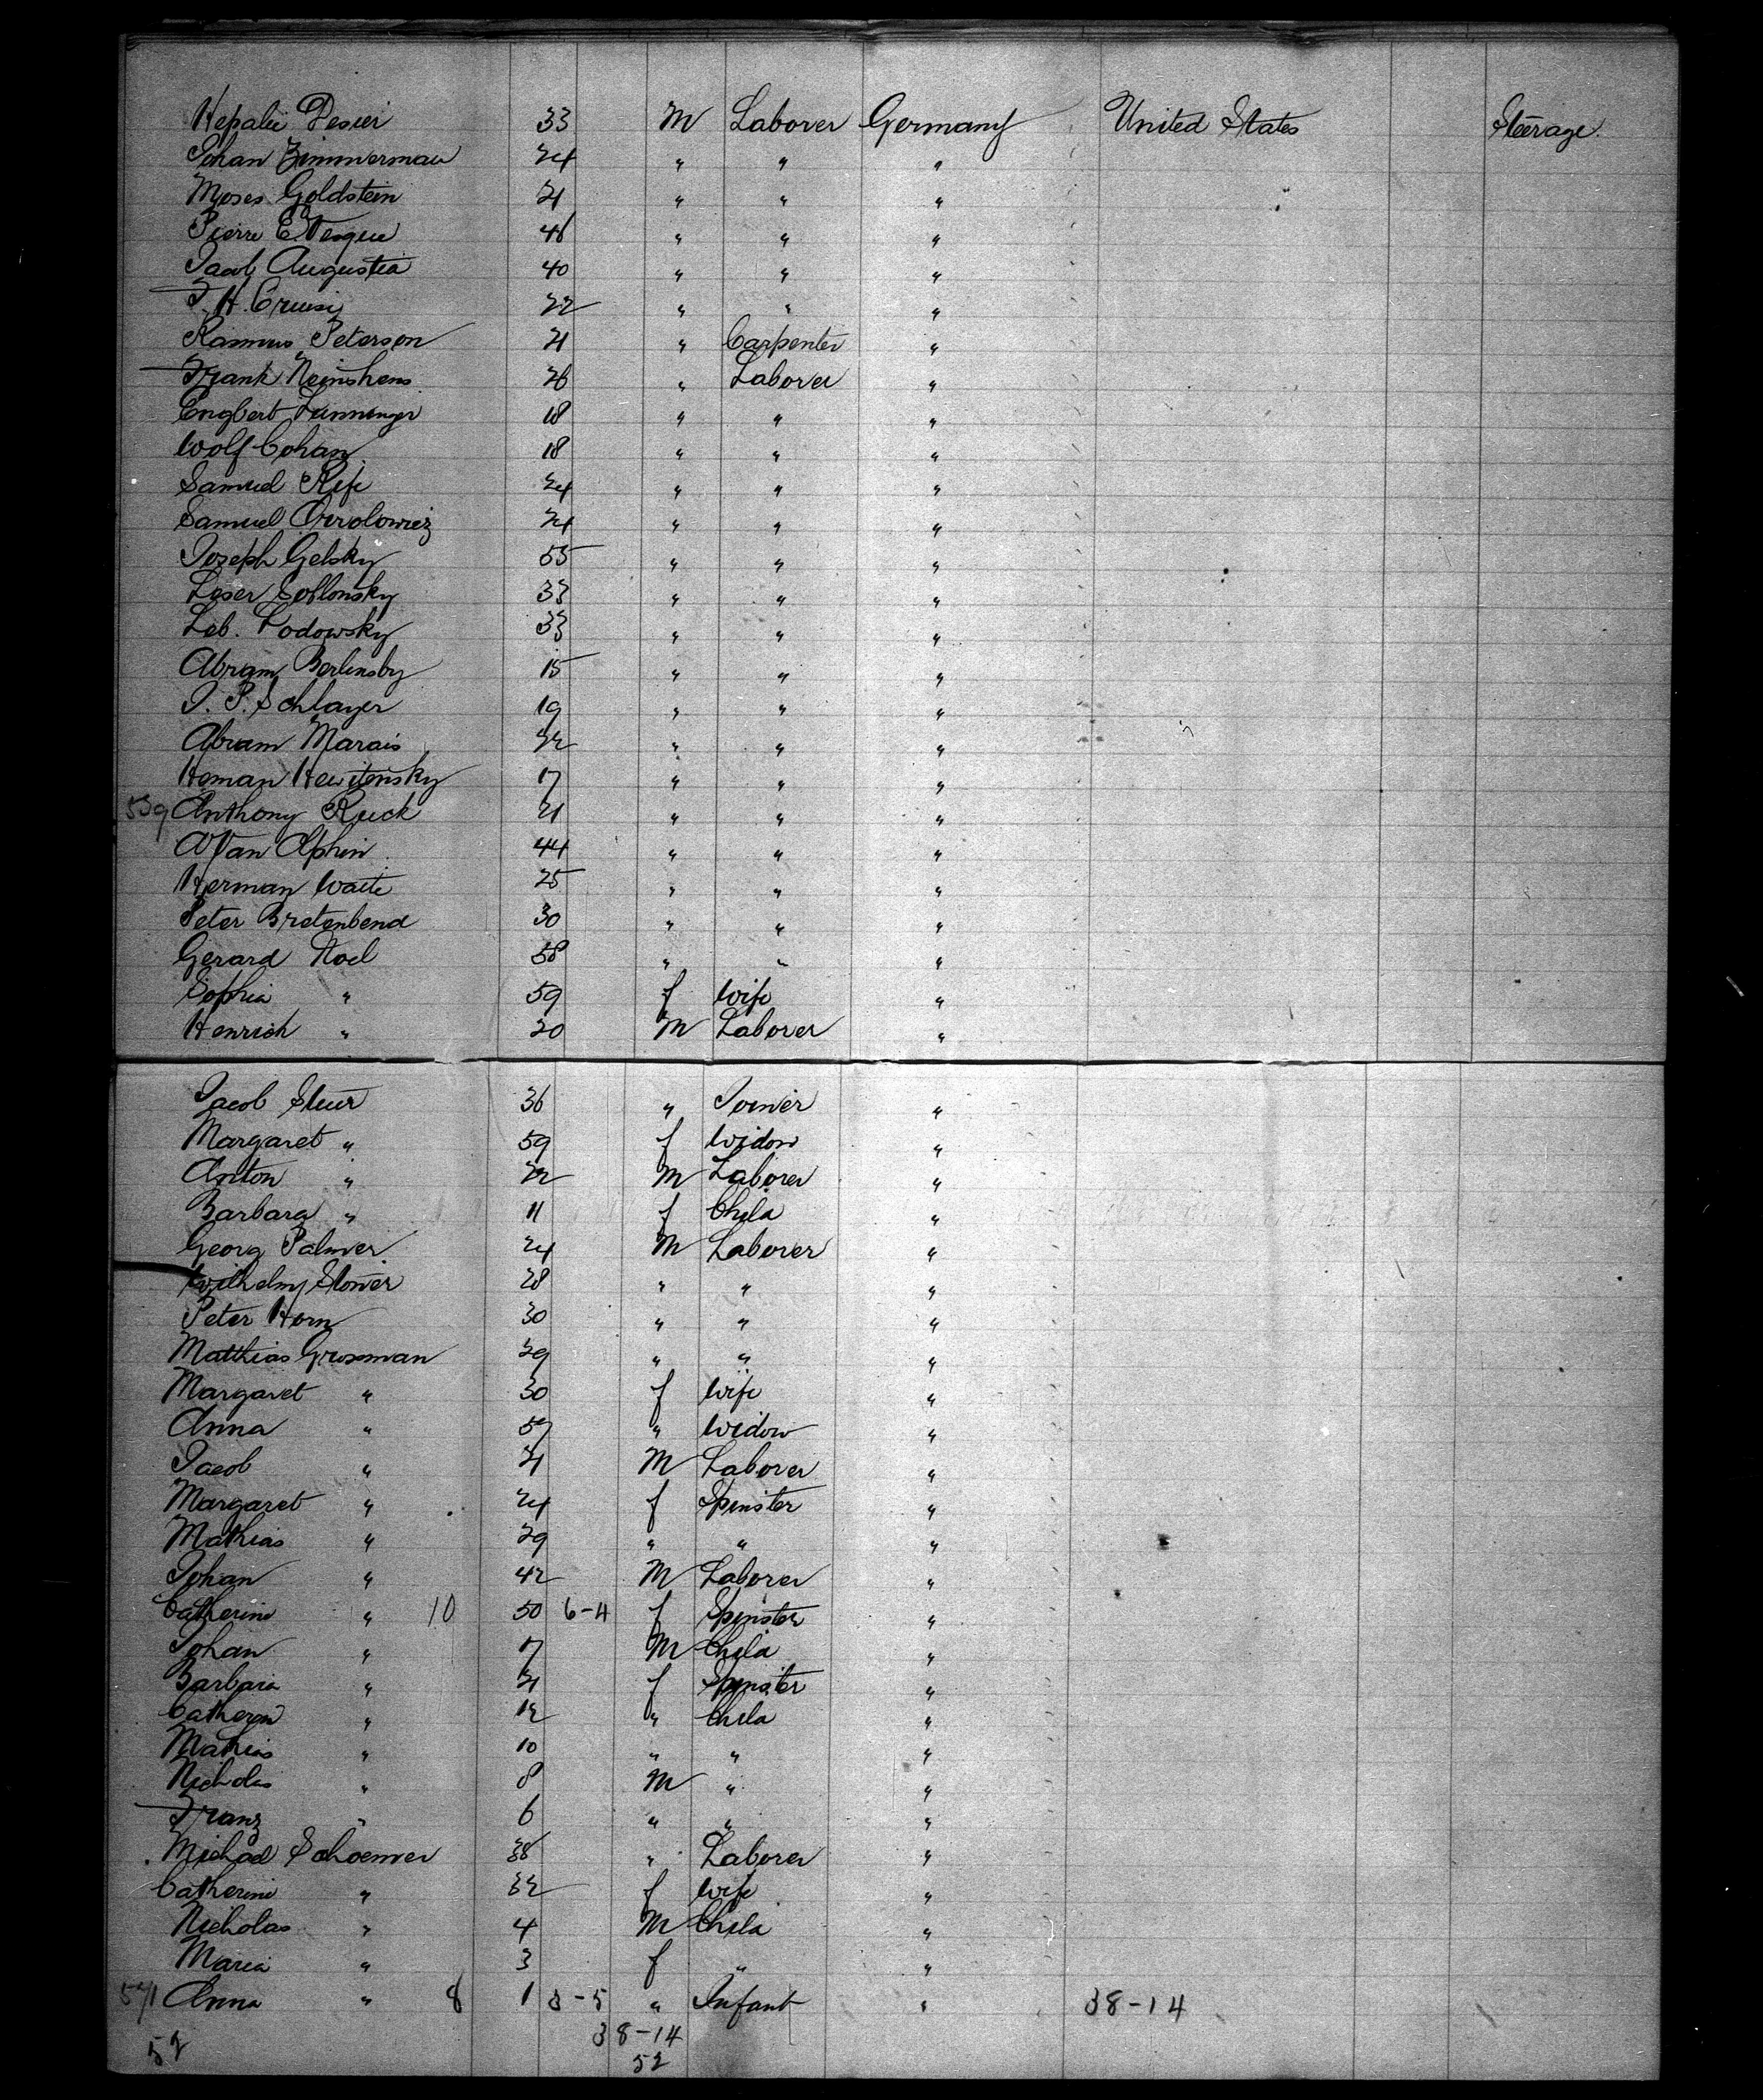 Hepalie Desier 33 M Laborer Germany United States Steerage.
Johan Zimmerman 24 " " "
Moses Goldstein 21 " " "
Pierre E. Vesque 46 " " "
Jacob Augustia 40 " " "
F. H. Crusi 22 " " "
Rasmus Peterson 21 " Carpenter "
Frank Neinshens 26 " Laborer "
Engbert Lunninger 18 " " "
Wolf Cohan 18 " " "
Samuel Rife 24 " " "
Samuel Orrolowiez 24 " " "
Joseph Gelsky 55 " " "
Leser Soblonsky 33 " " "
Leb. Podowsky 33 " " "
Abram Berlinsby 15 " " "
J. P. Schlayer 19 " " "
Abram Marais 22 " " "
Heman Hewitensky 17 " " "
539 Anthony Ruck 21 " " "
A Van Alphin 44 " " "
Herman Waite 25 " " "
Peter Bretenbend 30 " " "
Gerard Noel 58 " " "
Sophia " 59 f Wife "
Henrich " 20 M Laborer "
Jacob Stuer 36 " Joiner "
Margaret " 59 f Widow "
Anton " 22 M Laborer "
Barbara " 11 f Child "
Georg Palmer 24 M Laborer "
Wilhelm Stoner 28 " " "
Peter Horn 30 " " "
Matthias Grossman 29 " " "
Margaret " 30 f Wife "
Anna " 57 " Widow "
Jacob " 21 M Laborer "
Margaret " 24 f Spinster "
Mathias " 29 " " "
Johan " 42 M Laborer "
Catherine " 10 50 6-4 f Spinster "
Johan " 17 M Child "
Barbara " 21 f Spinster "
Catherin " 12 " Child "
Mathias " 10 " " "
Nicholas " 8 M " "
Franz " 6 " " "
Michael Schoemer 38 " Laborer "
Catherine " 32 f Wife "
Nicholas " 4 M Child "
Maria " 3 f " "
571 Anna " 8 1 3-5 " Infant " 38-14
38-14
52 52